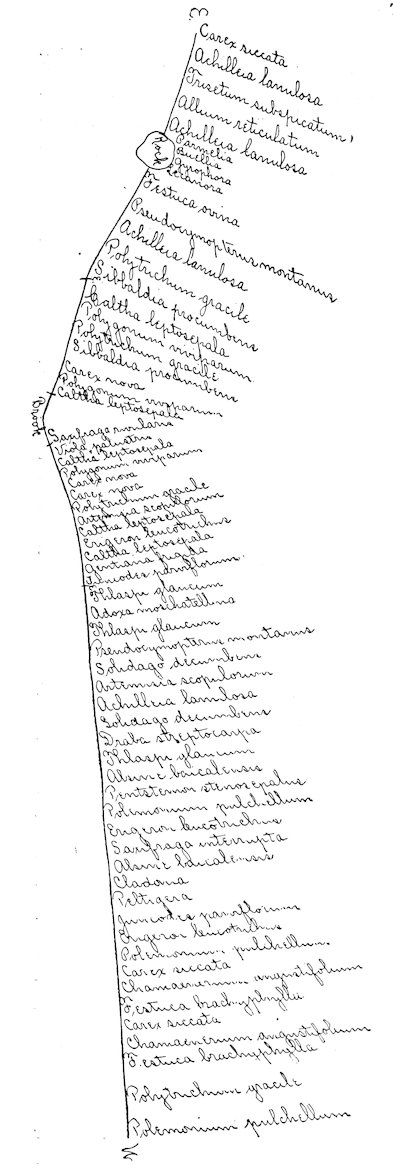 Carex siccata
Achilleia lanulosa
Trisetum subspicatum
Allium reticulatum
Achilleia lanulosa
Rock
Parmelia
Buellia
Gyrophora
Lecanora
Festuca ovina
Pseudocymopterus montanus
Achilleia lanulosa
Polytrichum gracile
Sibbaldia procumbens
Caltha leptosepala
Polygonum viviparum
Polytrichum gracile
Sibbaldia procumbens
Carex nova
Polygonum viviparum
Caltha leptosepala
Brook
Saxifraga
Viola palustris
Caltha leptosepala
Polygonum viviparum
Carex nova
Carex nova
Polytrichum gracile
Artemisia scopulorum
Caltha leptosepala
Erigeron leucotrichus
Caltha leptosepala
Gentiana frigida
Juncodes parviflorum
Thlaspi glaucum
Adoxa moschatellina
Thlaspi glaucum
Pseudocymopterus montanus
Solidago decumbens
Artemisia scopulorum
Achilleia lanulosa
Solidago decumbens
Draba streptocarpa
Thlaspi glaucum
Alsine baicalensis
Pentstemon stenosepalus
Polemonium pulchellum
Erigeron leucotrichus
Saxifraga interrupta
Alsine baicalensis
Cladonia
Peltigera
Juncodes parviflorum
Erigeron leucotrichus
Polemonium pulchellum
Carex siccata
Chamaenerium angustifolium
Festuca brachyphylla
Carex siccata
Chamaenerium angustifolium
Festuca brachyphylla
Polytrichum gracile
Polemonium pulchellum